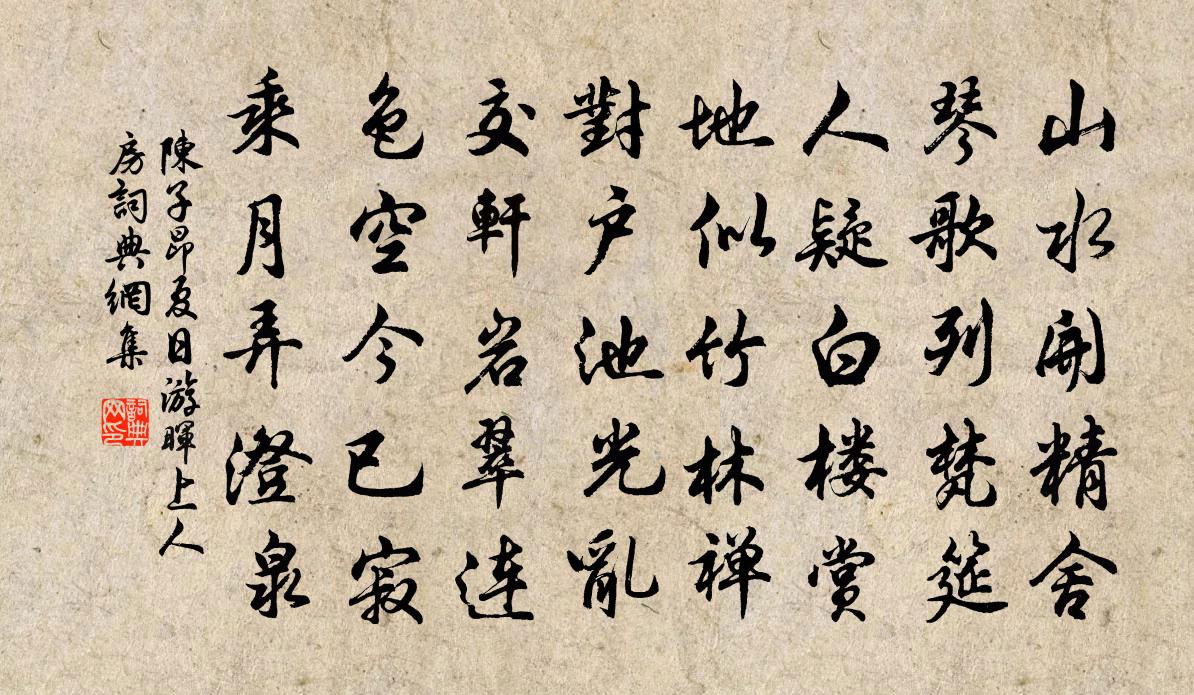 山水開精舍
琴歌列梵筵
人疑白楼赏
地似竹林禅
對户池光亂
交軒岩翠连
色空今已寂
乘月弄澄泉
陳子昂夏日游暉上人
房詞典網集
詞典网印